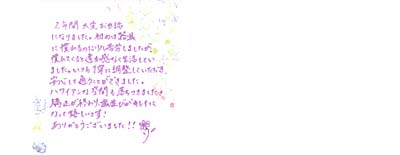 2年間大変お世話
になりました。初めは装置
に慣れるのに少し苦労しましたが、
慣れてくると違和感なく生活してい
ました。いつも丁寧に調整していただき、
安心して通うことができました。
ハワイアンな空間も落ちつきました。
矯正が終わり、歯並びがきれいに
なって嬉しいです!
ありがとうございました!!